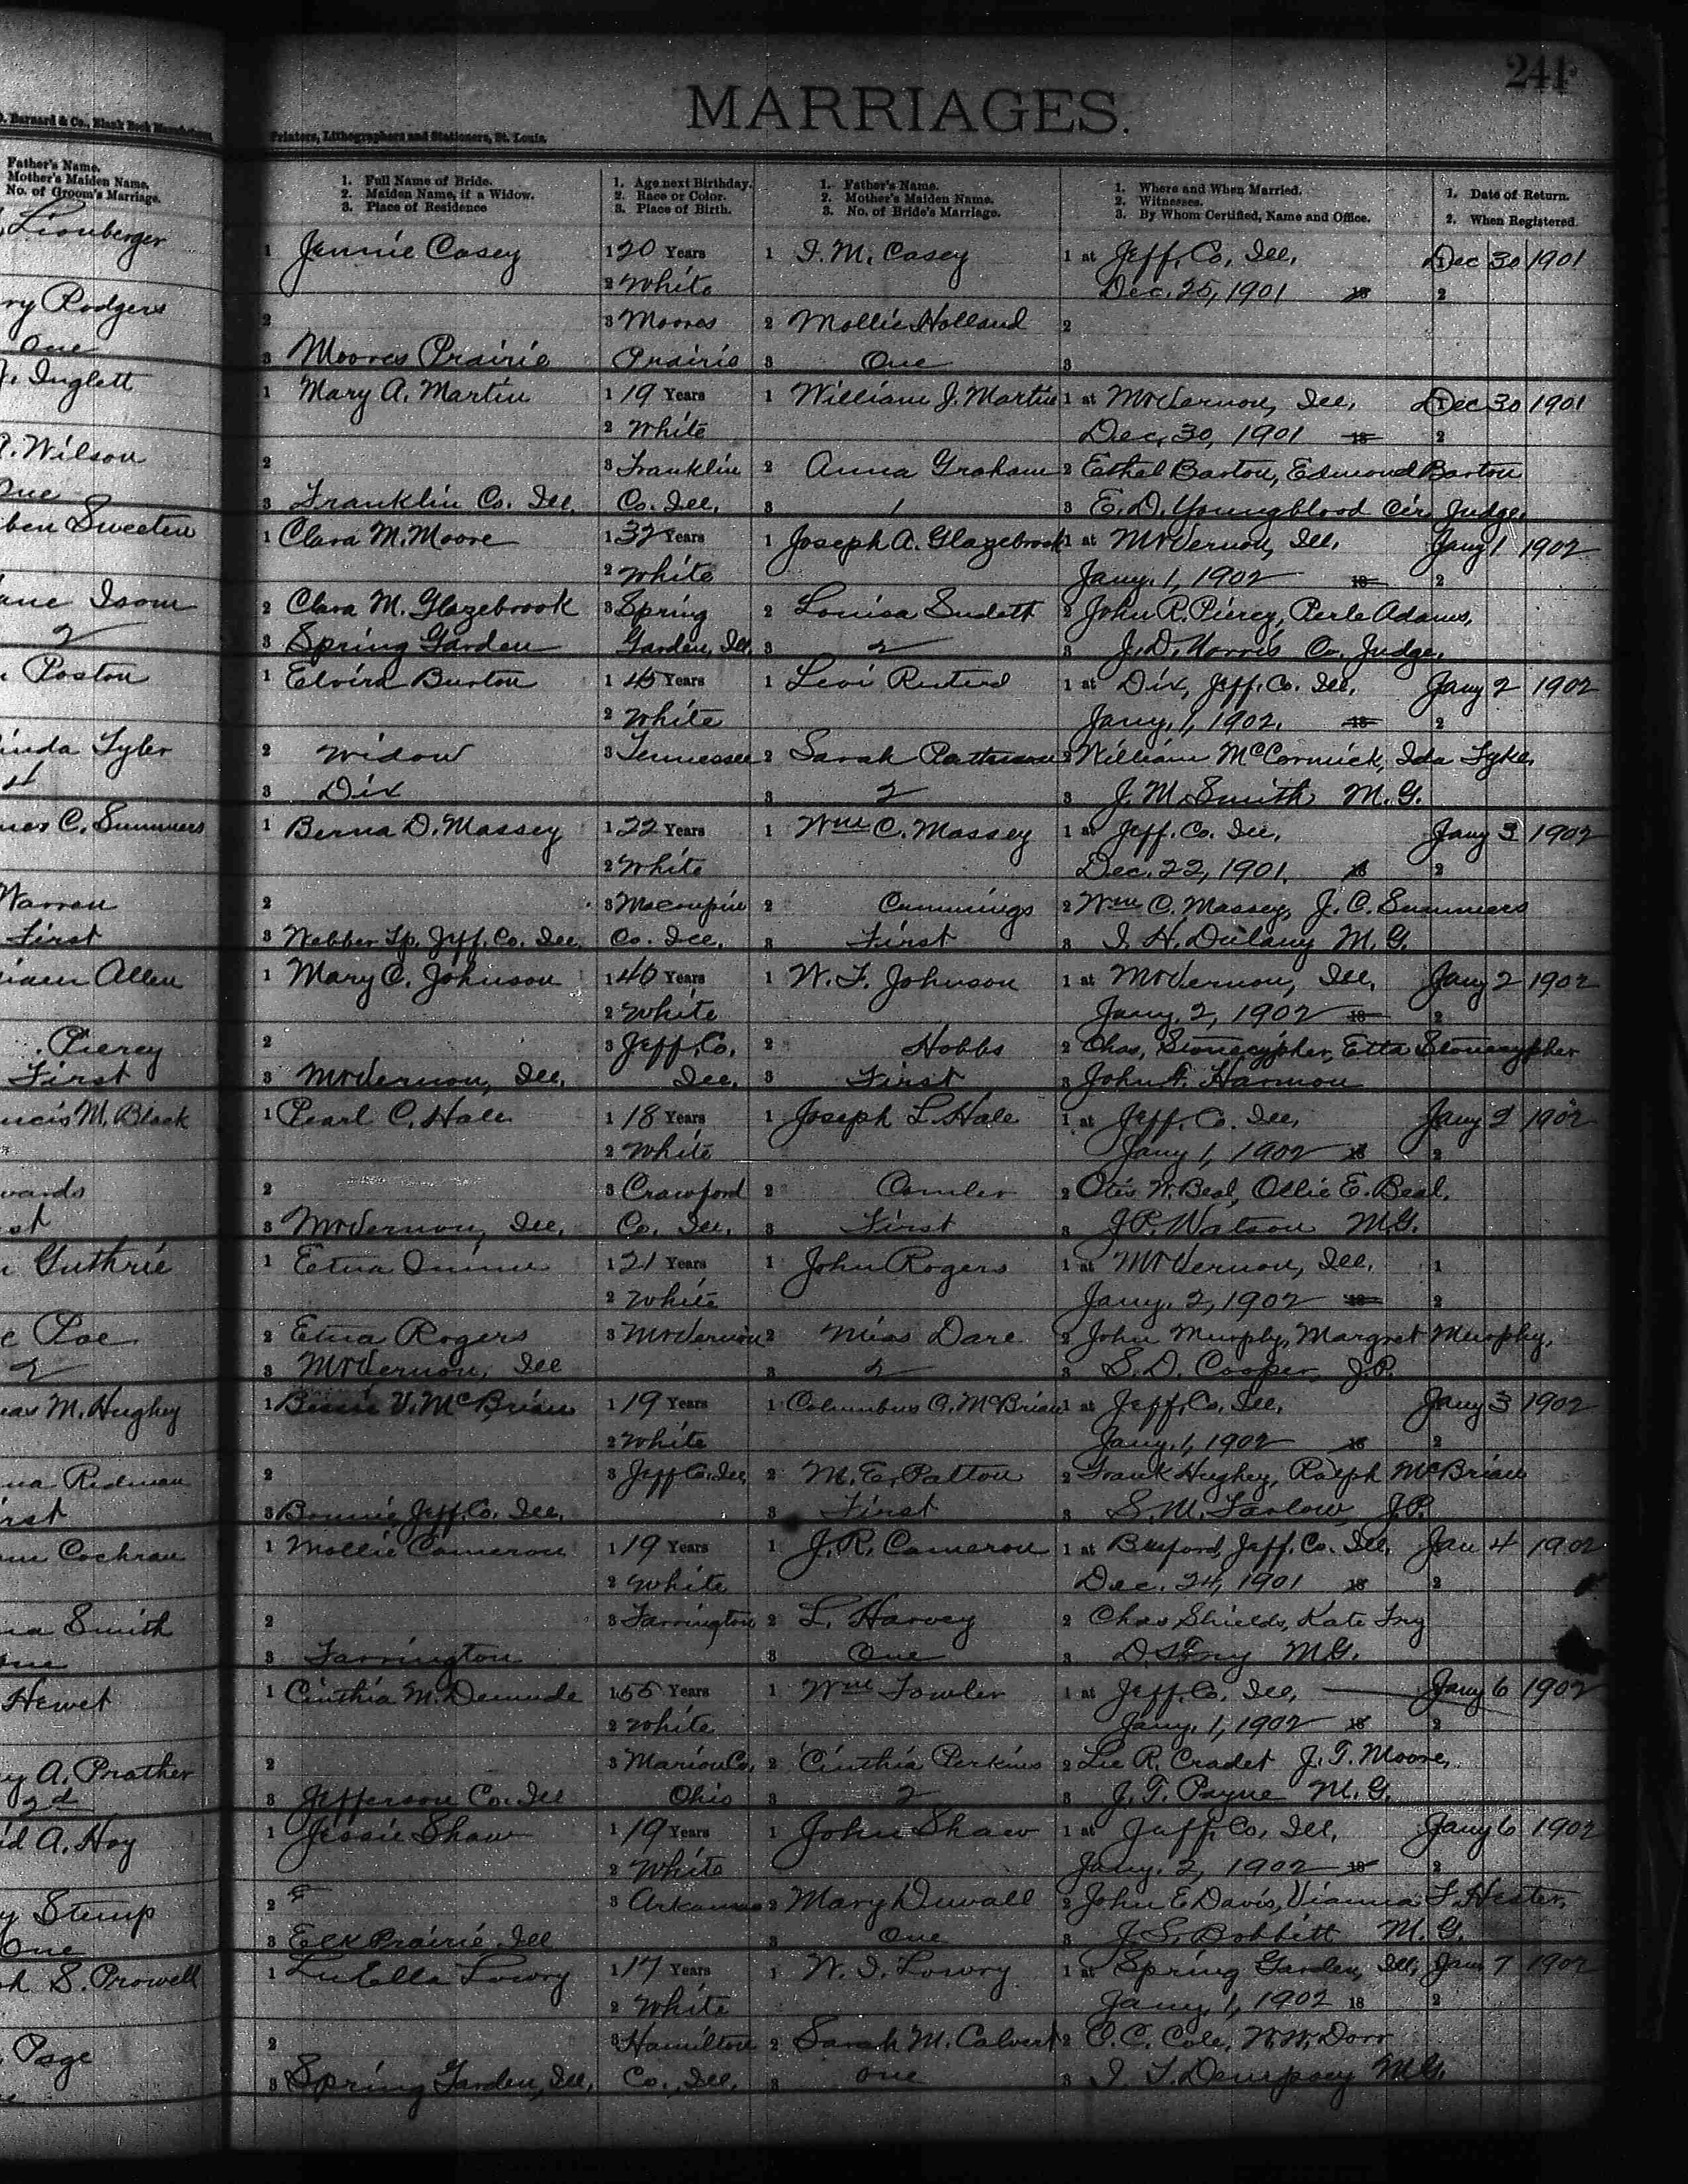 241
MARRIAGES.
D. Barnard & Co., Blank Book Manufacturers,
Printers, Lithographers and Stationers, St. Louis.
Father's Name.
Mother's Maiden Name.
No. of Groom's Marriage.
1. Full Name of Bride.
2. Maiden Name, if a Widow.
3. Place of Residence
1. Age next Birthday.
2. Race or Color.
3. Place of Birth.
1. Father's Name.
2. Mother's Maiden Name.
3. No. of Bride's Marriage.
1. Where and When Married.
2. Witnesses.
3. By Whom Certified, Name and Office.
1. Date of Return.
2. When Registered.
Lionberger
1 Jennie Casey 1 20 Years 1 I. M. Casey 1 at Jeff. Co. Ill. Dec 30 1901
2 White Dec. 25, 1901 18 2
ry Rodgers
2 3 Moores 2 Mollie Holland 2
One
3 Moores Prairie Prairie 3 One 3
J. Inglett
1 Mary A. Martin 1 19 Years 1 William J. Martin 1 at Mt Vernon, Ill. Dec 30 1901
2 White Dec. 30, 1901 18 2
P. Wilson
2 3 Franklin 2 Anna Graham 2 Ethel Barton, Edmond Barton
One
3 Franklin Co. Ill. Co. Ill. 3 1 3 E. D. Youngblood Cir. Judge.
ben Sweeten
1 Clara M. Moore 1 32 Years 1 Joseph A. Glazebrook 1 at Mt Vernon, Ill. Jany 1 1902
2 White Jany. 1, 1902 18 2
ane Isom
2 Clara M. Glazebrook 3 Spring 2 Louisa Sudett 2 John R. Piercy, Perle Adams,
2
3 Spring Garden Garden, Ill. 3 2 3 J. D. Norris Co. Judge.
Poston
1 Elvira Burton 1 45 Years 1 Levi 1 at Dix, Jeff. Co. Ill. Jany 2 1902
2 White Jany. 1, 1902. 18 2
inda Tyler
2 Widow 3 Tennessee 2 Sarah 2 William McCormick, Ida Fyke,
4
3 Dix 3 2 3 J. M. Smith M. G.
mes C. Summers
1 Berna D. Massey 1 22 Years 1 Wm C. Massey 1 at Jeff. Co. Ill. Jany 3 1902
2 White Dec. 22, 1901. 18 2
Warren
2 3 Macoupin 2 Cummings 2 Wm C. Massey, J. C. Summers
First
3 Webber Tp. Jeff. Co. Ill. Co. Ill. 3 First 3 I. H. Dulany M. G.
iam Allen
1 Mary C. Johnson 1 40 Years 1 W. F. Johnson 1 at Mt Vernon, Ill. Jany 2 1902
2 White Jany. 2, 1902 18 2
Piercy
2 3 Jeff. Co. 2 Hobbs 2 Chas. Stonecypher, Etta Stonecypher
First
3 Mt Vernon, Ill. Ill. 3 First 3 John F. Harmon
ncis M. Black
1 Pearl C. Hale 1 18 Years 1 Joseph L. Hale 1 at Jeff. Co. Ill. Jany 2 1902
2 White Jany 1, 1902 18 2
wards
2 3 Crawford 2 2 Otis W. Beal, Ollie E. Beal.
st
3 Mt Vernon, Ill. Co. Ill. 3 First 3 J. P. Watson M. G.
Guthrie
1 Etna 1 21 Years 1 John Rogers 1 at Mt Vernon, Ill. 1
2 White Jany. 2, 1902 18 2
Poe
2 Etna Rogers 3 Mt Vernon 2 Miss Dare 2 John Murphy, Margret Murphy,
2
3 Mt Vernon, Ill 3 2 3 S. D. Cooper, J. P.
M. Hughey
1 Bessie V. McBrian 1 19 Years 1 Columbus O. McBrian 1 at Jeff. Co. Ill. Jany 3 1902
2 White Jany. 1, 1902 18 2
na Redman
2 3 Jeff Co. Ill. 2 M. E. Patton 2 Frank Hughey, Ralph McBrian
First
3 Bonnie Jeff. Co. Ill. 3 First 3 S. M. Farlow, J. P.
m Cochran
1 Mollie Cameron 1 19 Years 1 J. R. Cameron 1 at Buford, Jeff. Co. Ill. Jan 4 1902
2 White Dec. 24, 1901 18 2
na Smith
2 3 Farrington 2 L. Harvey 2 Chas Shields, Kate Fry
One
3 Farrington 3 One 3 Fry M. G.
Hewet
1 Cinthia M. Demude 1 55 Years 1 Wm Fowler 1 at Jeff. Co. Ill. Jany 6 1902
2 White Jany. 1, 1902 18 2
y A. Prather
2 3 Marion Co. 2 Cinthia Perkins 2 Lee R. Cradet J. T. Moore,
2d
3 Jefferson Co. Ill Ohio 3 2 3 J. T. Payne M. G.
id A. Hoy
1 Jessie Shaw 1 19 Years 1 John Shaw 1 at Jeff. Co. Ill. Jany 6 1902
2 White Jany. 2, 1902 18 2
y Stump
2 3 Arkansas 2 Mary Duvall 2 John E Davis, Vianna F. Hester,
One
3 Elk Prairie Ill 3 One 3 J. S. Bobbitt M. G.
S. Crowell
1 Lu Ella Lowry 1 17 Years 1 W. I. Lowry 1 at Spring Garden, Ill, Jan 7 1902
2 White Jany. 1, 1902 18 2
Page
2 3 Hamilton 2 Sarah M. Calvert 2 O. C. Cole, W. W. Dorr
3 Spring Garden, Ill. Co., Ill. 3 One 3 I. T. Dempsey M. G.